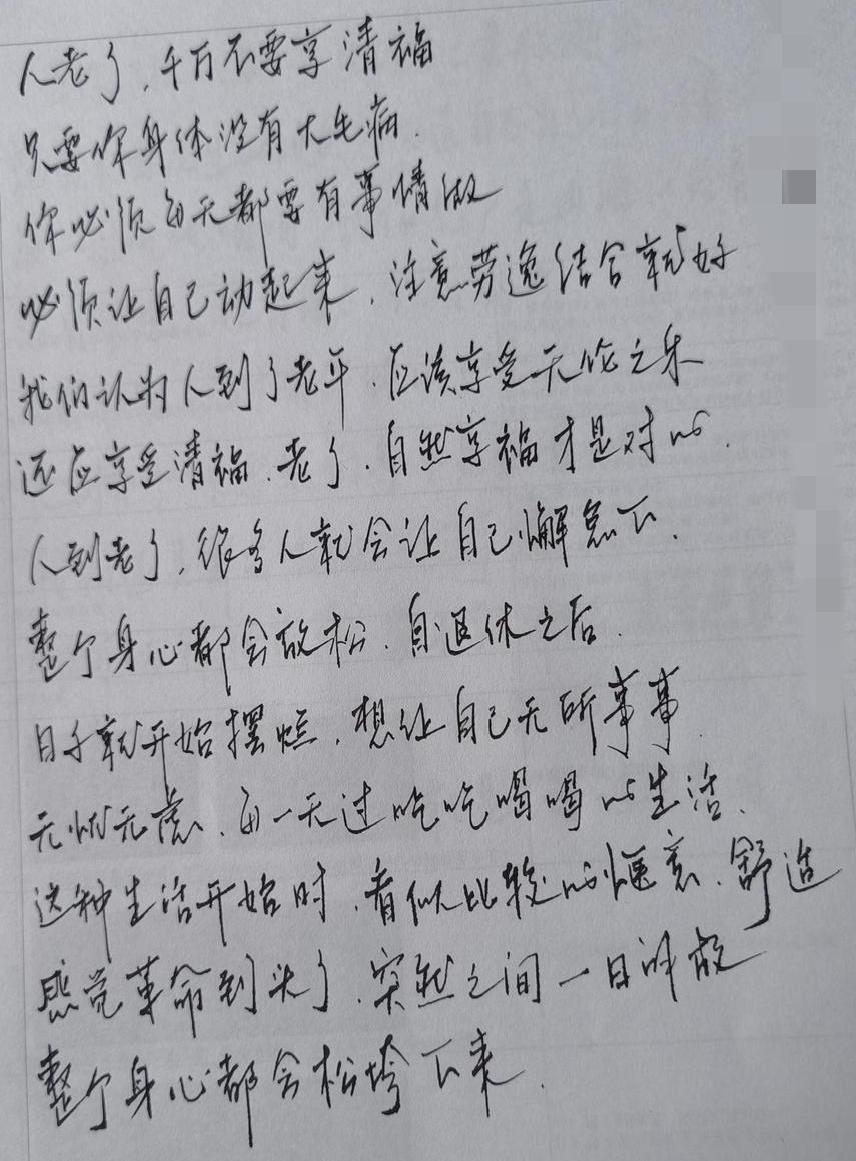 人老了，千万不要享清福
只要你身体没有大毛病．
你必须每天都要有事情做
必须让自己动起来，注意劳逸结合就好
我们认为人到了老年，应该享受天伦之乐
还应享受清福，老了，自然享福才是对的．
人到老了，很多人就会让自己懈怠下，
整个身心都会放松，自退休之后．
日子就开始摆烂，想让自己无所事事．
无忧无虑，每一天过吃吃喝喝的生活、
这种生活开始时，看似比较的惬意，舒适
感觉革命到头了，突然之间一日
整个身心都会松垮下来．